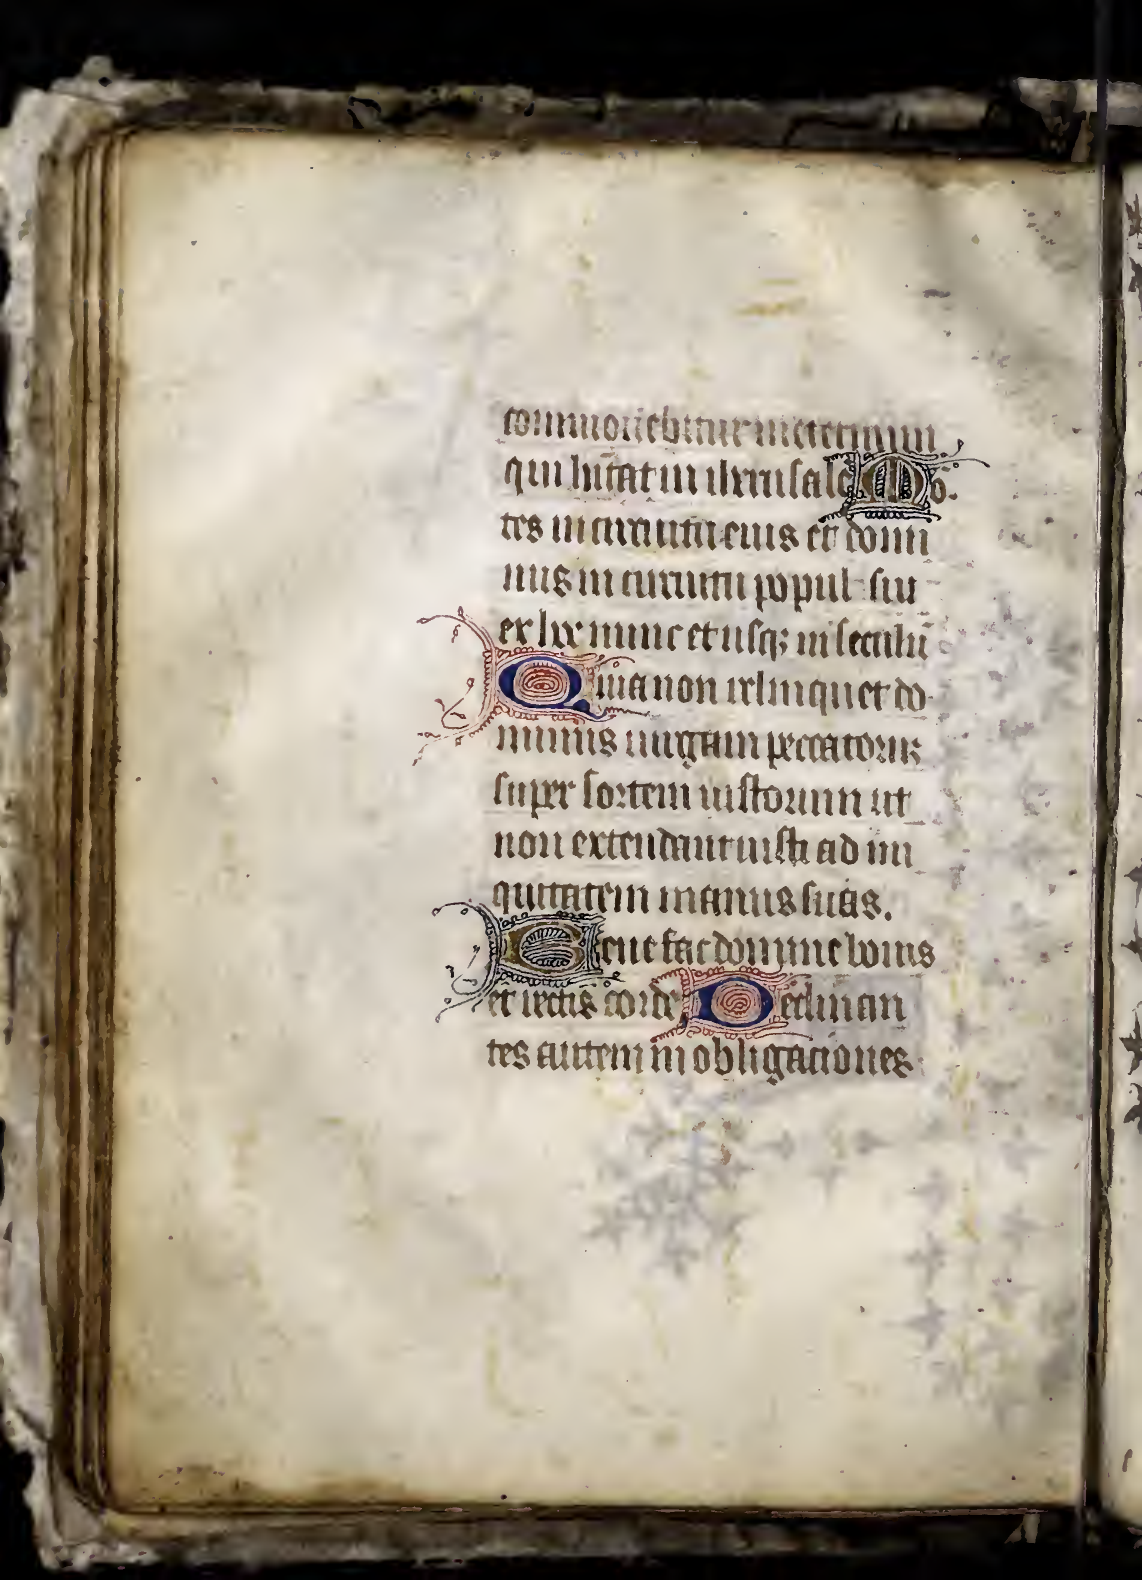 commouebitur in eternum
qui hitat in iherusalē Mō
tes in circuitu eius et domi
nus in circuitu populi sui
ex hoc nunc et usqꝫ in seculū
Quia non relinquet do
minus uirgam peccatoruꝫ
super sortem iustorum ut
non extendant iusti ad ini
quitatem manus suas.
Benefac domine bonis
et rectis corde Declinan
tes autem in obligationes